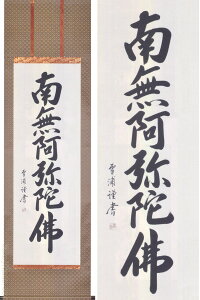 南無阿弥陀佛
雪浦謹書
南無阿弥陀佛
雪浦謹書